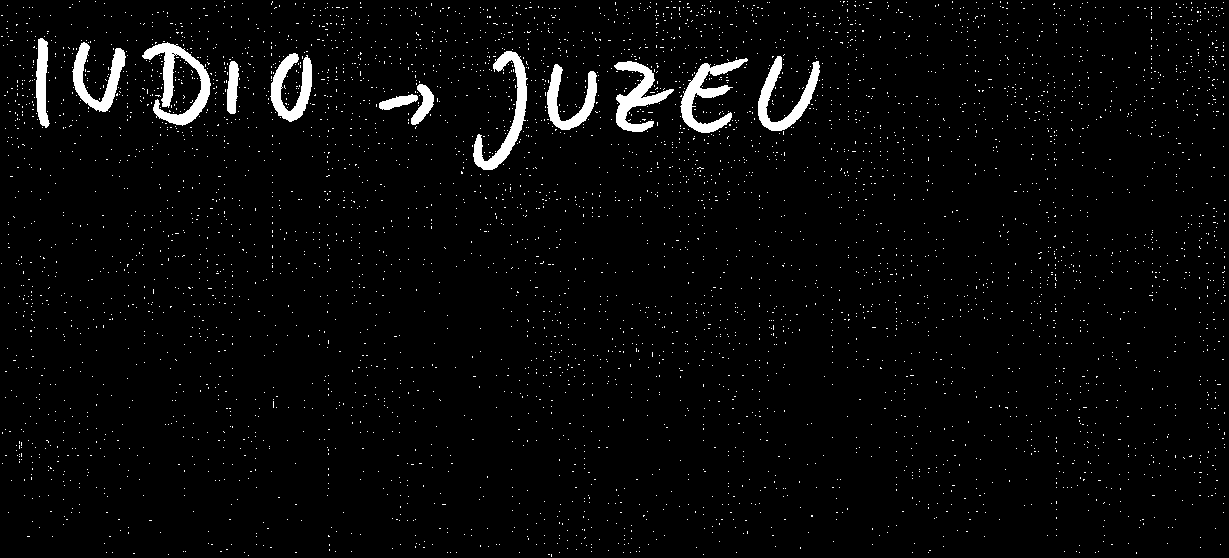 IUDIO → JUZEU